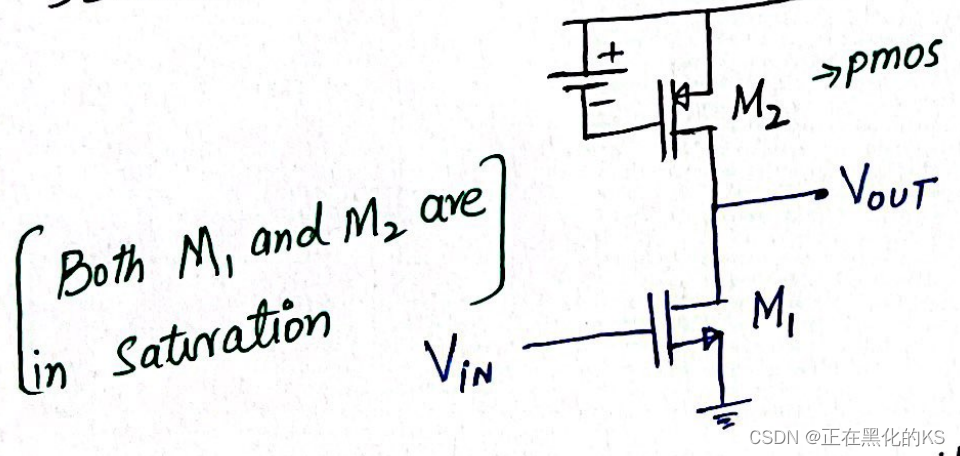 +
−
M₂
→pmos
VOUT
[Both M₁ and M₂ are
in saturation]
VIN
M₁
CSDN @正在黑化的KS